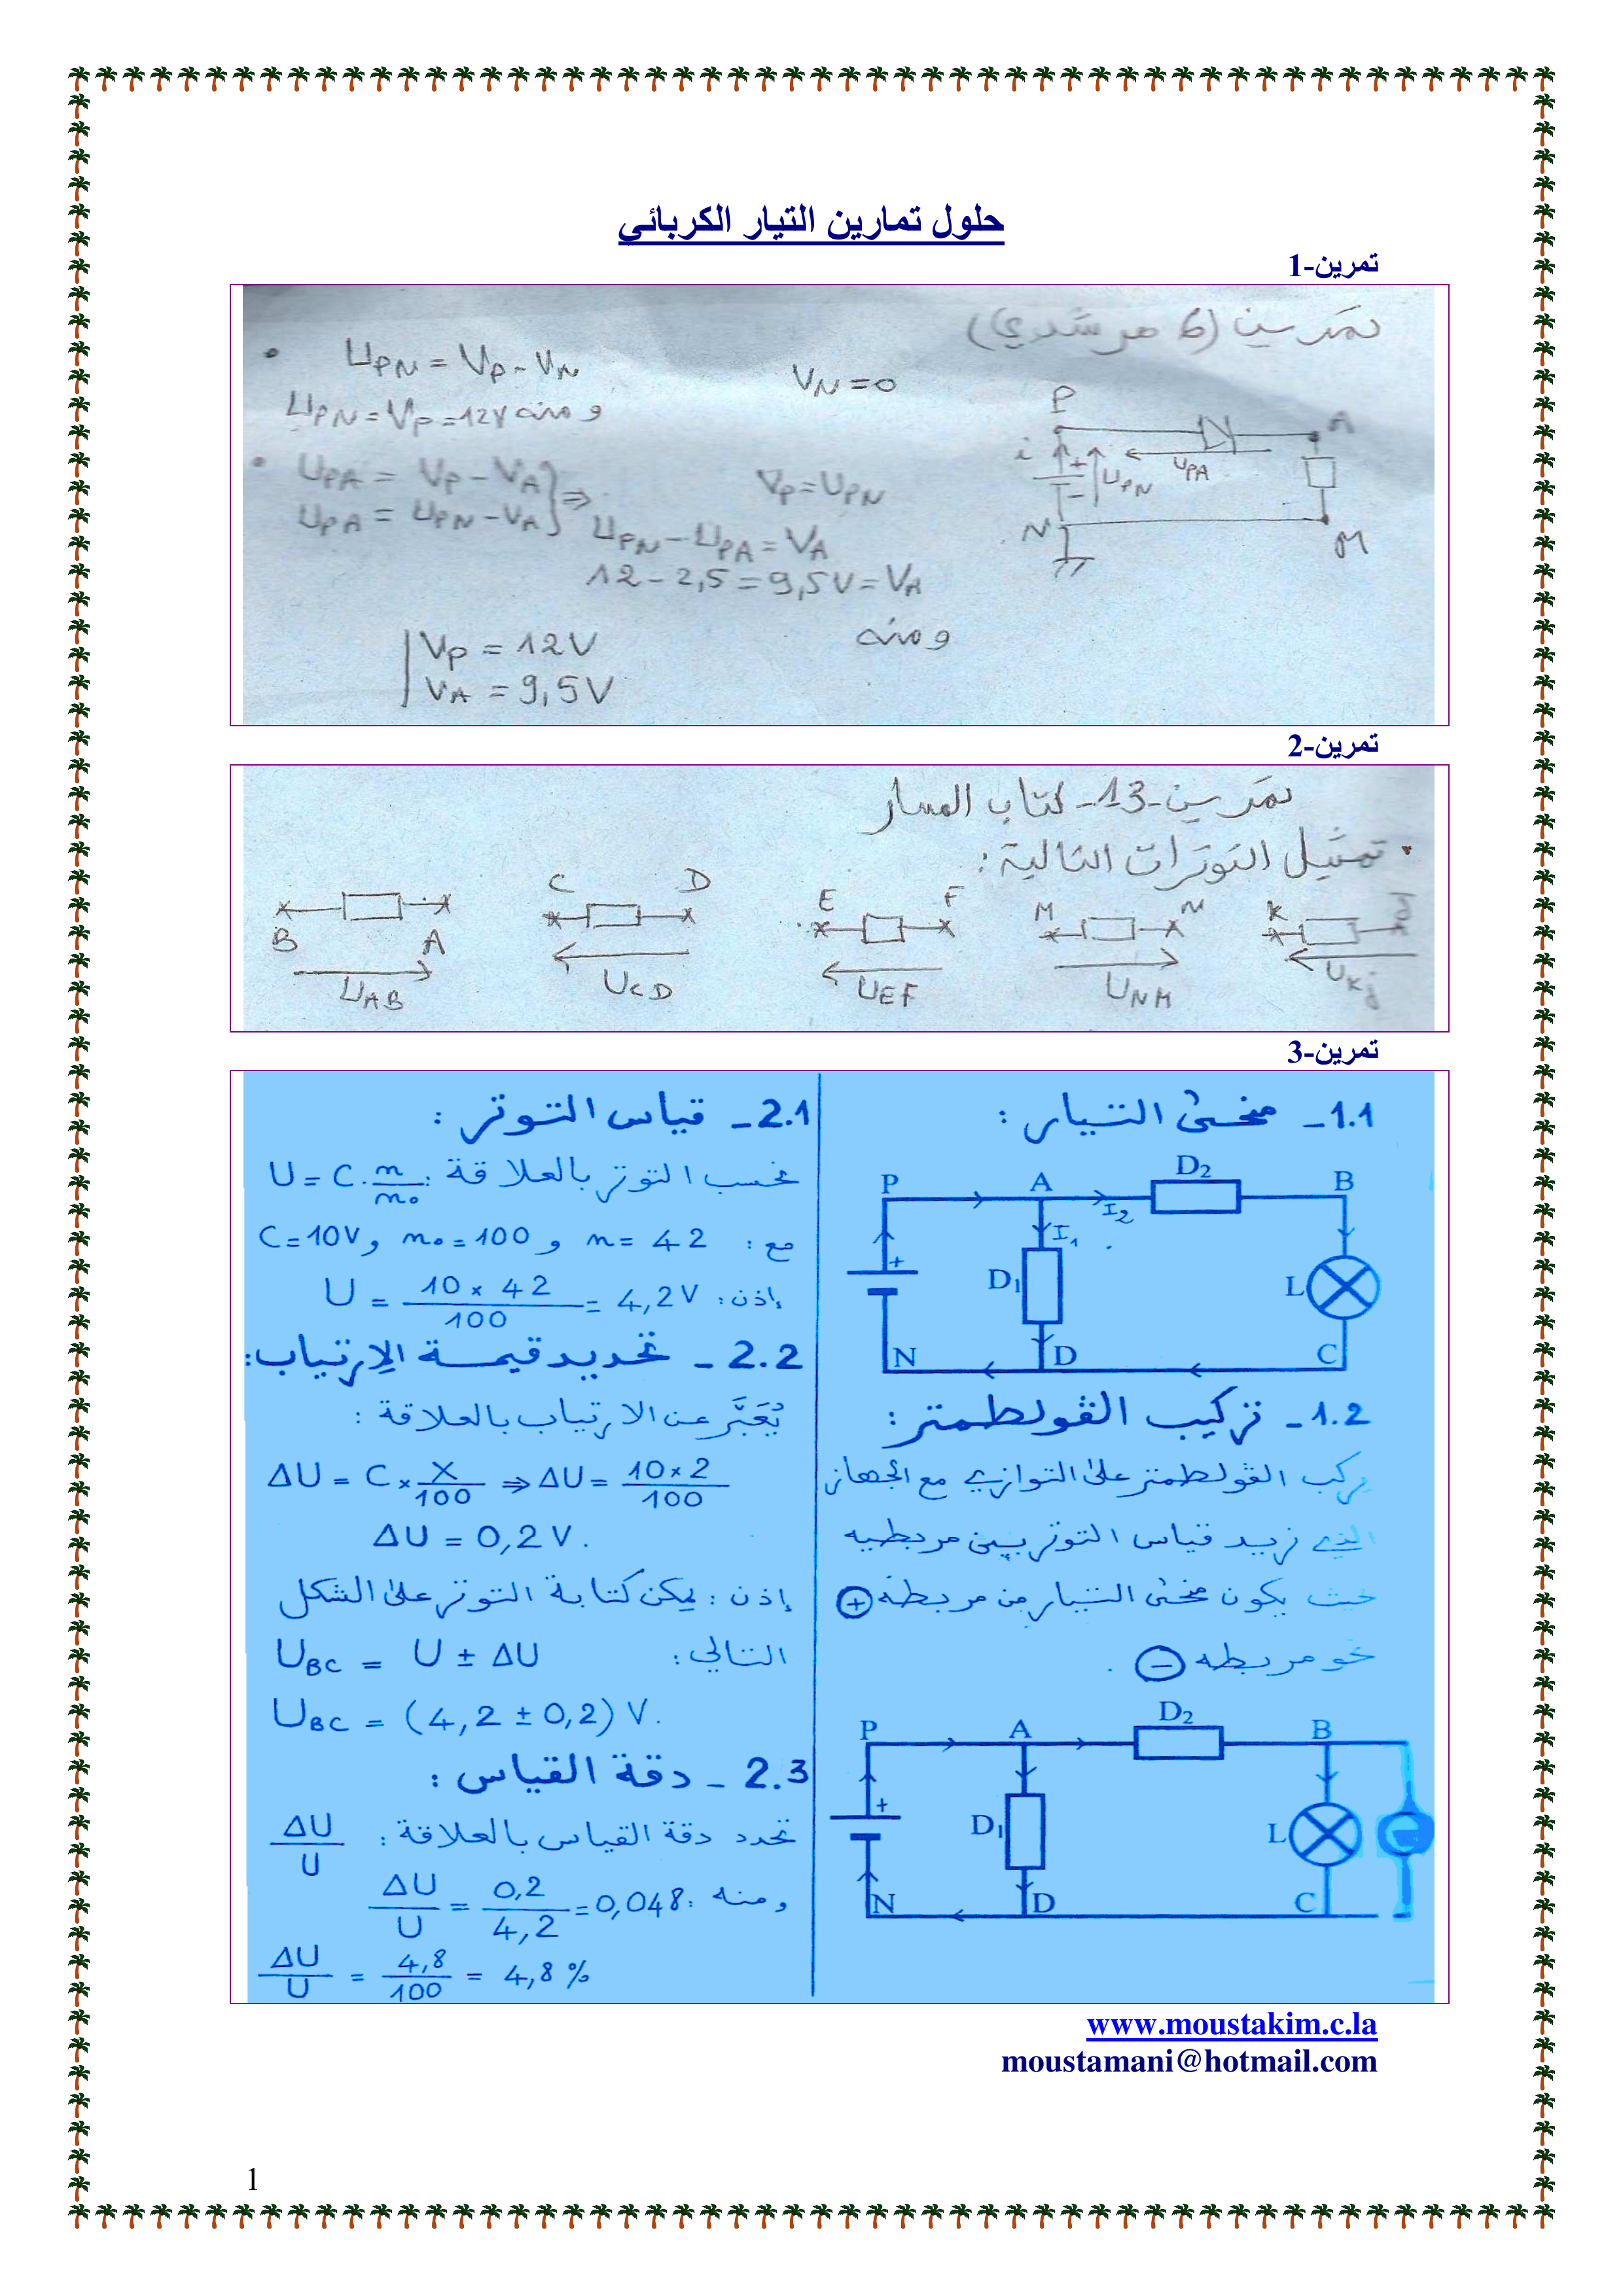 حلول تمارين التيار الكربائي
تمرين-1
تمرين (6 مرشدي)
• U_PN = V_P - V_N
V_N = 0
U_PN = V_P = 12V ومنه
• U_PA = V_P - V_A
U_PA = U_PN - V_A } ⇒
V_P = U_PN
U_PN - U_PA = V_A
12 - 2,5 = 9,5V = V_A
ومنه
V_P = 12V
V_A = 9,5V
P
A
i
+
-
U_PN
U_PA
N
M
تمرين-2
تمرين-13- كتاب المسار
• تمثيل التوترات التالية:
B A
U_AB
C D
U_CD
E F
U_EF
M N
U_NM
K
U_Kj
تمرين-3
1.1- منحى التيار :
P A D2 B
I1 I2
+ D1 L
N D C
1.2- تركيب الڤولطمتر :
يركب الڤولطمتر على التوازي مع الجهاز
الذي نريد قياس التوتر بين مربطيه
حيث يكون منحى التيار من مربطه ⊕
نحو مربطه ⊖ .
P A D2 B
+ D1 L
N D C
2.1- قياس التوتر :
نحسب التوتر بالعلاقة : U = C . n/n₀
مع : n = 42 و n₀ = 100 و C = 10V
إذن : U = 10 × 42 / 100 = 4,2V
2.2- تحديد قيمة الارتياب:
يُعَبَّر عن الارتياب بالعلاقة :
ΔU = C × X/100 ⇒ ΔU = 10 × 2 / 100
ΔU = 0,2 V.
إذن : يمكن كتابة التوتر على الشكل
التالي : U_BC = U ± ΔU
U_BC = (4,2 ± 0,2) V.
2.3- دقة القياس :
تحدد دقة القياس بالعلاقة : ΔU/U
ومنه : ΔU/U = 0,2/4,2 = 0,048
ΔU/U = 4,8/100 = 4,8 %
www.moustakim.c.la
moustamani@hotmail.com
1